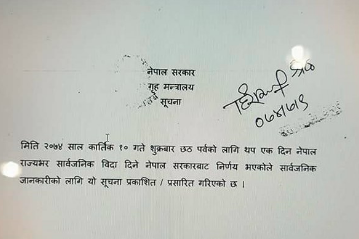 नेपाल सरकार
गृह मन्त्रालय
सूचना
०७४।७।९
मिति २०७४ साल कार्तिक १० गते शुक्रबार छठ पर्वको लागि थप एक दिन नेपाल
राज्यभर सार्वजनिक विदा दिने नेपाल सरकारबाट निर्णय भएकोले सार्वजनिक
जानकारीको लागि यो सूचना प्रकाशित / प्रसारित गरिएको छ ।